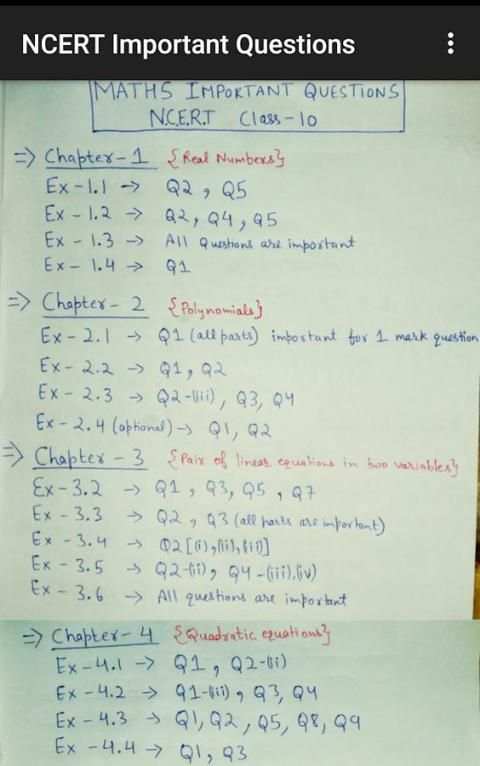 NCERT Important Questions
MATHS IMPORTANT QUESTIONS
N.C.E.R.T Class-10
=> Chapter-1 {Real Numbers}
Ex-1.1 -> Q2, Q5
Ex-1.2 -> Q2, Q4, Q5
Ex-1.3 -> All Questions are important
Ex-1.4 -> Q1
=> Chapter-2 {Polynomials}
Ex-2.1 -> Q1 (all parts) important for 1 mark question
Ex-2.2 -> Q1, Q2
Ex-2.3 -> Q2-(iii), Q3, Q4
Ex-2.4 (optional) -> Q1, Q2
=> Chapter-3 {Pair of linear equations in two variables}
Ex-3.2 -> Q1, Q3, Q5, Q7
Ex-3.3 -> Q2, Q3 (all parts are important)
Ex-3.4 -> Q2
Ex-3.5 -> Q2-(ii), Q4-(iii),(iv)
Ex-3.6 -> All questions are important
=> Chapter-4 {Quadratic equations}
Ex-4.1 -> Q1, Q2-(ii)
Ex-4.2 -> Q1-(iii), Q3, Q4
Ex-4.3 -> Q1, Q2, Q5, Q8, Q9
Ex-4.4 -> Q1, Q3